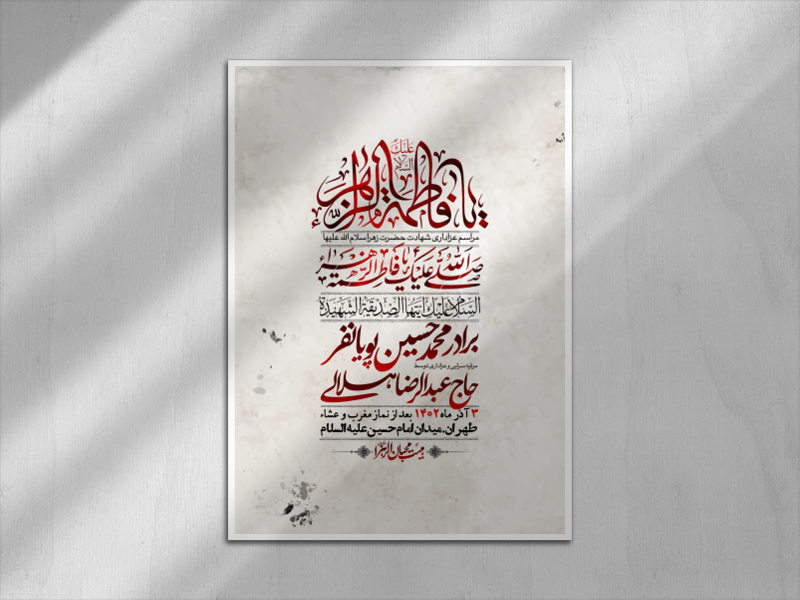 یا فاطمة الزهراء
علیک السلام
مراسم عزاداری شهادت حضرت زهرا سلام الله علیها
صلی الله علیک یا فاطمة الزهرا
السلام علیک ایتها الصدیقة الشهیدة
برادر محمد حسین پویانفر
مرثیه سرایی و عزاداری توسط
حاج عبدالرضا هلالی
۳ آذر ماه ۱۴۰۲ بعد از نماز مغرب و عشاء
طهران.میدان امام حسین علیه السلام
هیئت محبان الزهرا